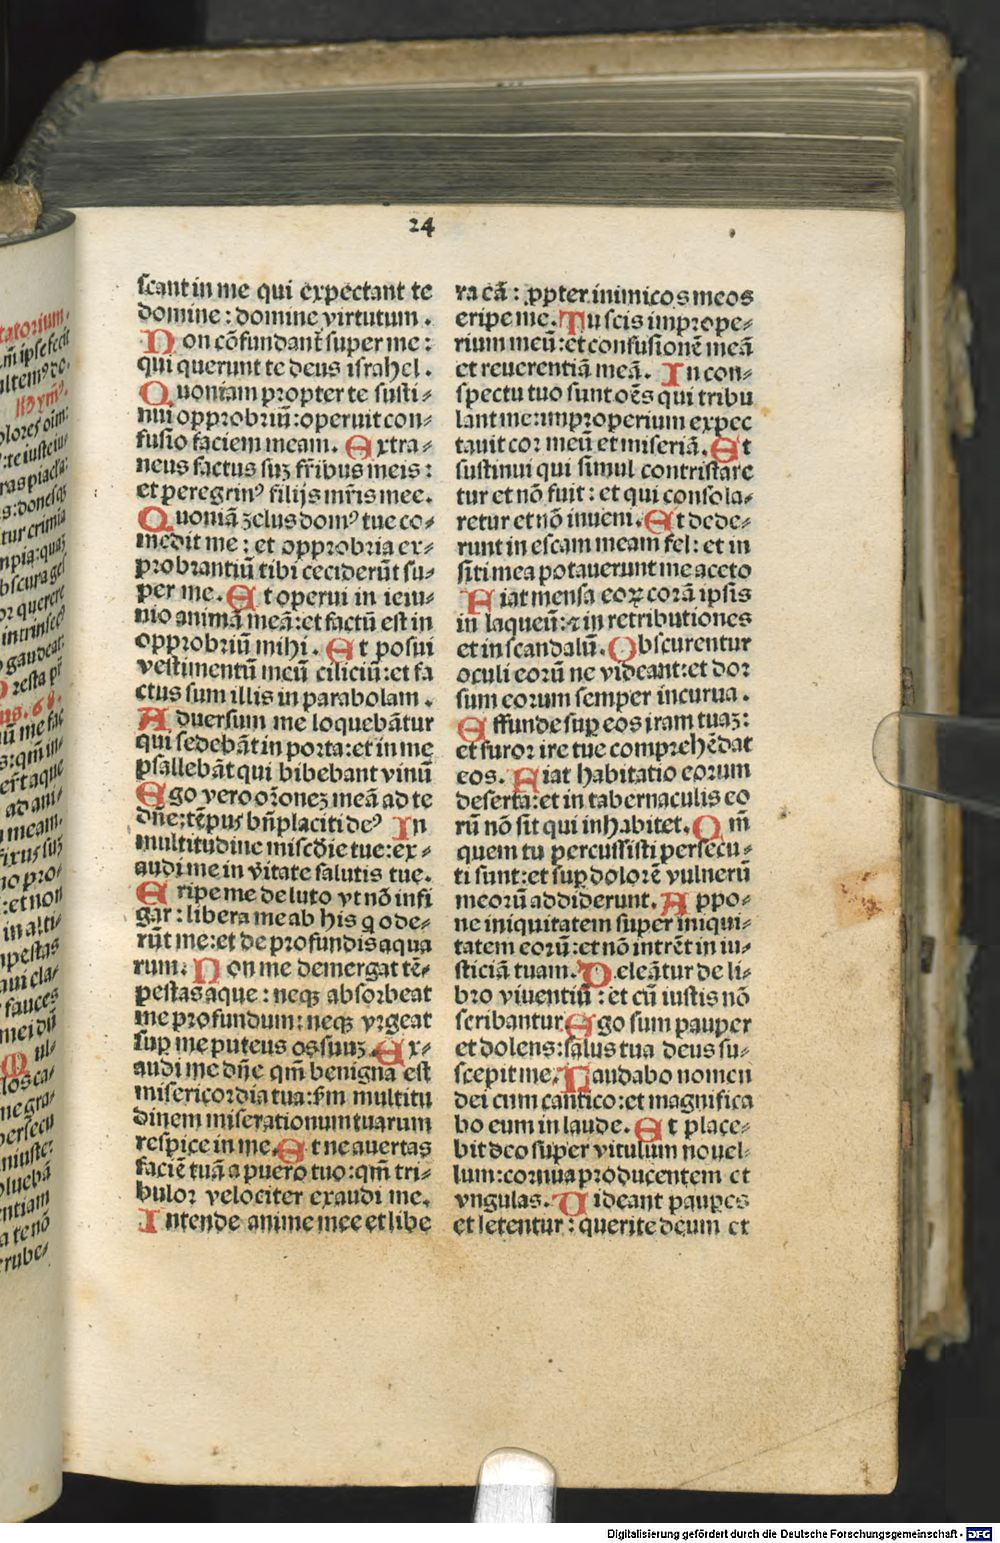 24
scant in me qui expectant te
domine : domine virtutum .
Non cõfundant̃ super me :
qui querunt te deus israhel .
Quoniam propter te susti⸗
nui opprobriũ : operuit con⸗
fusio faciem meam . Extra⸗
neus factus suʒ fr̃ibus meis :
et peregrinꝰ filijs mr̃is mee .
Quoniã ʒelus domꝰ tue co⸗
medit me : et opprobria ex⸗
probrantiũ tibi ceciderũt su⸗
per me . Et operui in ieiu⸗
nio animã meã : et factũ est in
opprobriũ mihi . Et posui
vestimentũ meũ ciliciũ : et fa
ctus sum illis in parabolam .
Aduersum me loquebãtur
qui sedebãt in porta : et in me
psallebãt qui bibebant vinũ
Ego vero or̃oneʒ meã ad te
dñe : tẽpus bñplaciti deꝰ In
multitudine misc̃die tue : ex⸗
audi me in v̉itate salutis tue .
Eripe me de luto vt nõ infi
gar : libera me ab his q ode⸗
rũt me : et de profundis aqua
rum . Non me demergat tẽ⸗
pestas aque : neqʒ absorbeat
me profundum : neqʒ vrgeat
suꝑ me puteus os suuʒ . Ex⸗
audi me dñe qm̃ benigna est
misericordia tua : ẜm multitu
dinem miserationum tuarum
respice in me . Et ne auertas
faciẽ tuã a puero tuo : qm̃ tri⸗
bulor velociter exaudi me .
Intende anime mee et libe
ra eã : ꝓpter inimicos meos
eripe me . Tu scis imprope⸗
rium meũ : et confusionẽ meã
et reuerentiã meã . In con⸗
spectu tuo sunt oẽs qui tribu
lant me : improperium expec
tauit cor meũ et miseriã . Et
sustinui qui simul contristare
tur et nõ fuit : et qui consola⸗
retur et nõ inueni . Et dede⸗
runt in escam meam fel : et in
siti mea potauerunt me aceto
Fiat mensa eoꝝ corã ipsis
in laqueũ : ⁊ in retributiones
et in scandalũ . Obscurentur
oculi eorũ ne videant : et dor
sum eorum semper incurua .
Effunde suꝑ eos iram tuaʒ :
et furor ire tue comprehẽdat
eos . Fiat habitatio eorum
deserta : et in tabernaculis eo
rũ nõ sit qui inhabitet . Qm̃
quem tu percussisti persecu⸗
ti sunt : et suꝑ dolorẽ vulnerũ
meorũ addiderunt . Appo⸗
ne iniquitatem super iniqui⸗
tatem eorũ : et nõ intrẽt in iu⸗
sticiã tuam . Deleãtur de li⸗
bro viuentiũ : et cũ iustis nõ
scribantur . Ego sum pauper
et dolens : salus tua deus su⸗
scepit me . Laudabo nomen
dei cum cantico : et magnifica
bo eum in laude . Et place⸗
bit deo super vitulum nouel⸗
lum : cornua producentem et
vngulas . Videant pauꝑes
et letentur : querite deum et
Digitalisierung gefördert durch die Deutsche Forschungsgemeinschaft - DFG